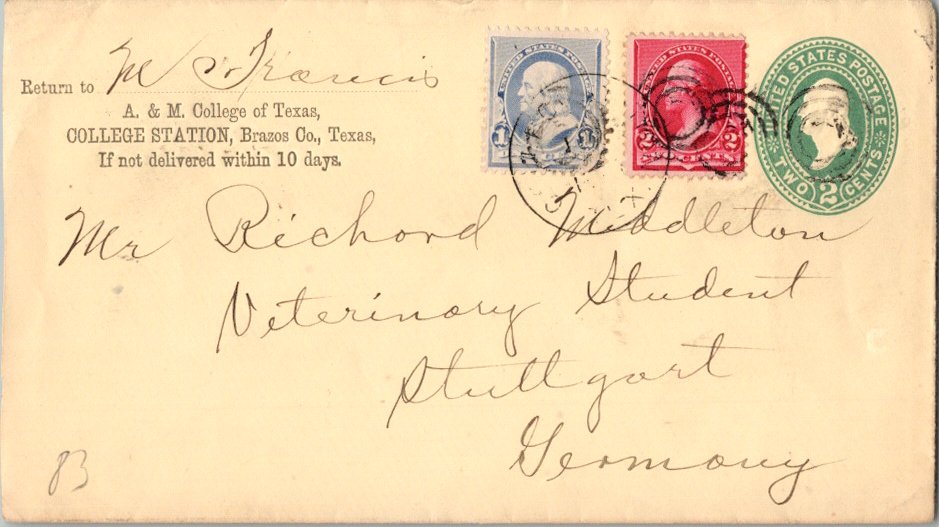 Return to M Francis
A. & M. College of Texas,
COLLEGE STATION, Brazos Co., Texas,
If not delivered within 10 days.
UNITED STATES POSTAGE
1 1
UNITED STATES POSTAGE
2 2
TWO CENTS
UNITED STATES POSTAGE
TWO 2 CENTS
Mr Richard Middleton
Veterinary Student
Stuttgart
Germany
83